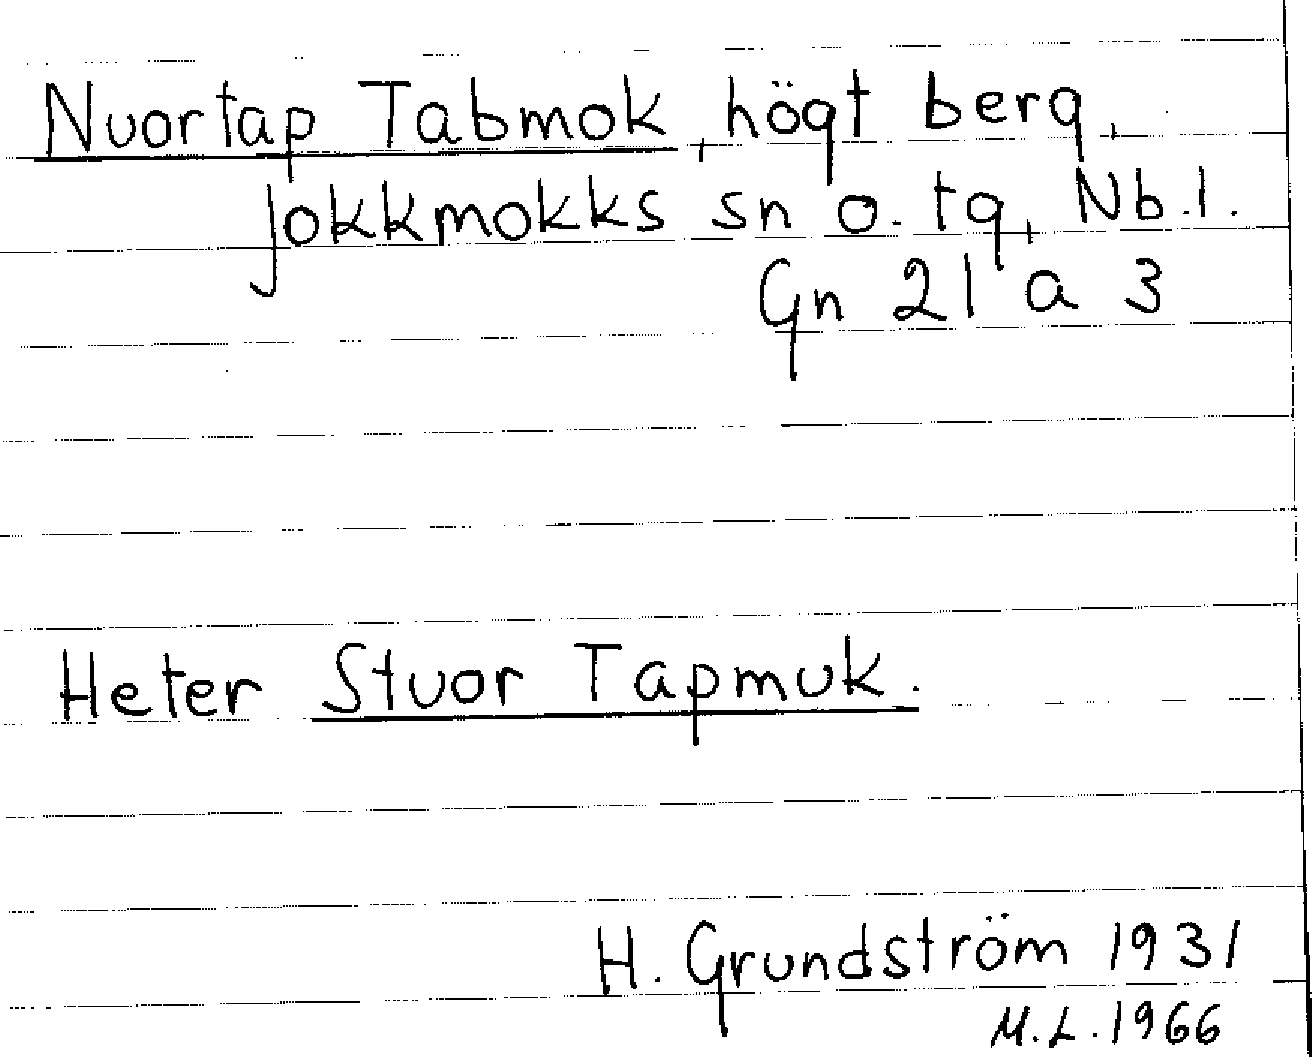 Nuortap Tabmok, högt berg,
Jokkmokks sn o. tg, Nb.l.
Gn 21 a 3
Heter Stuor Tapmuk.
H. Grundström 1931
M.L. 1966